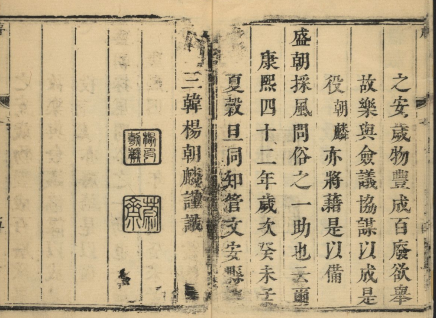 之安歲物豐成百廢欲舉
故樂與僉議協謀以成是
役朝麟亦將藉是以備
盛朝採風問俗之一助也云爾
康熙四十二年歲次癸未子
夏穀旦同知管文安縣
三韓楊朝麟謹識